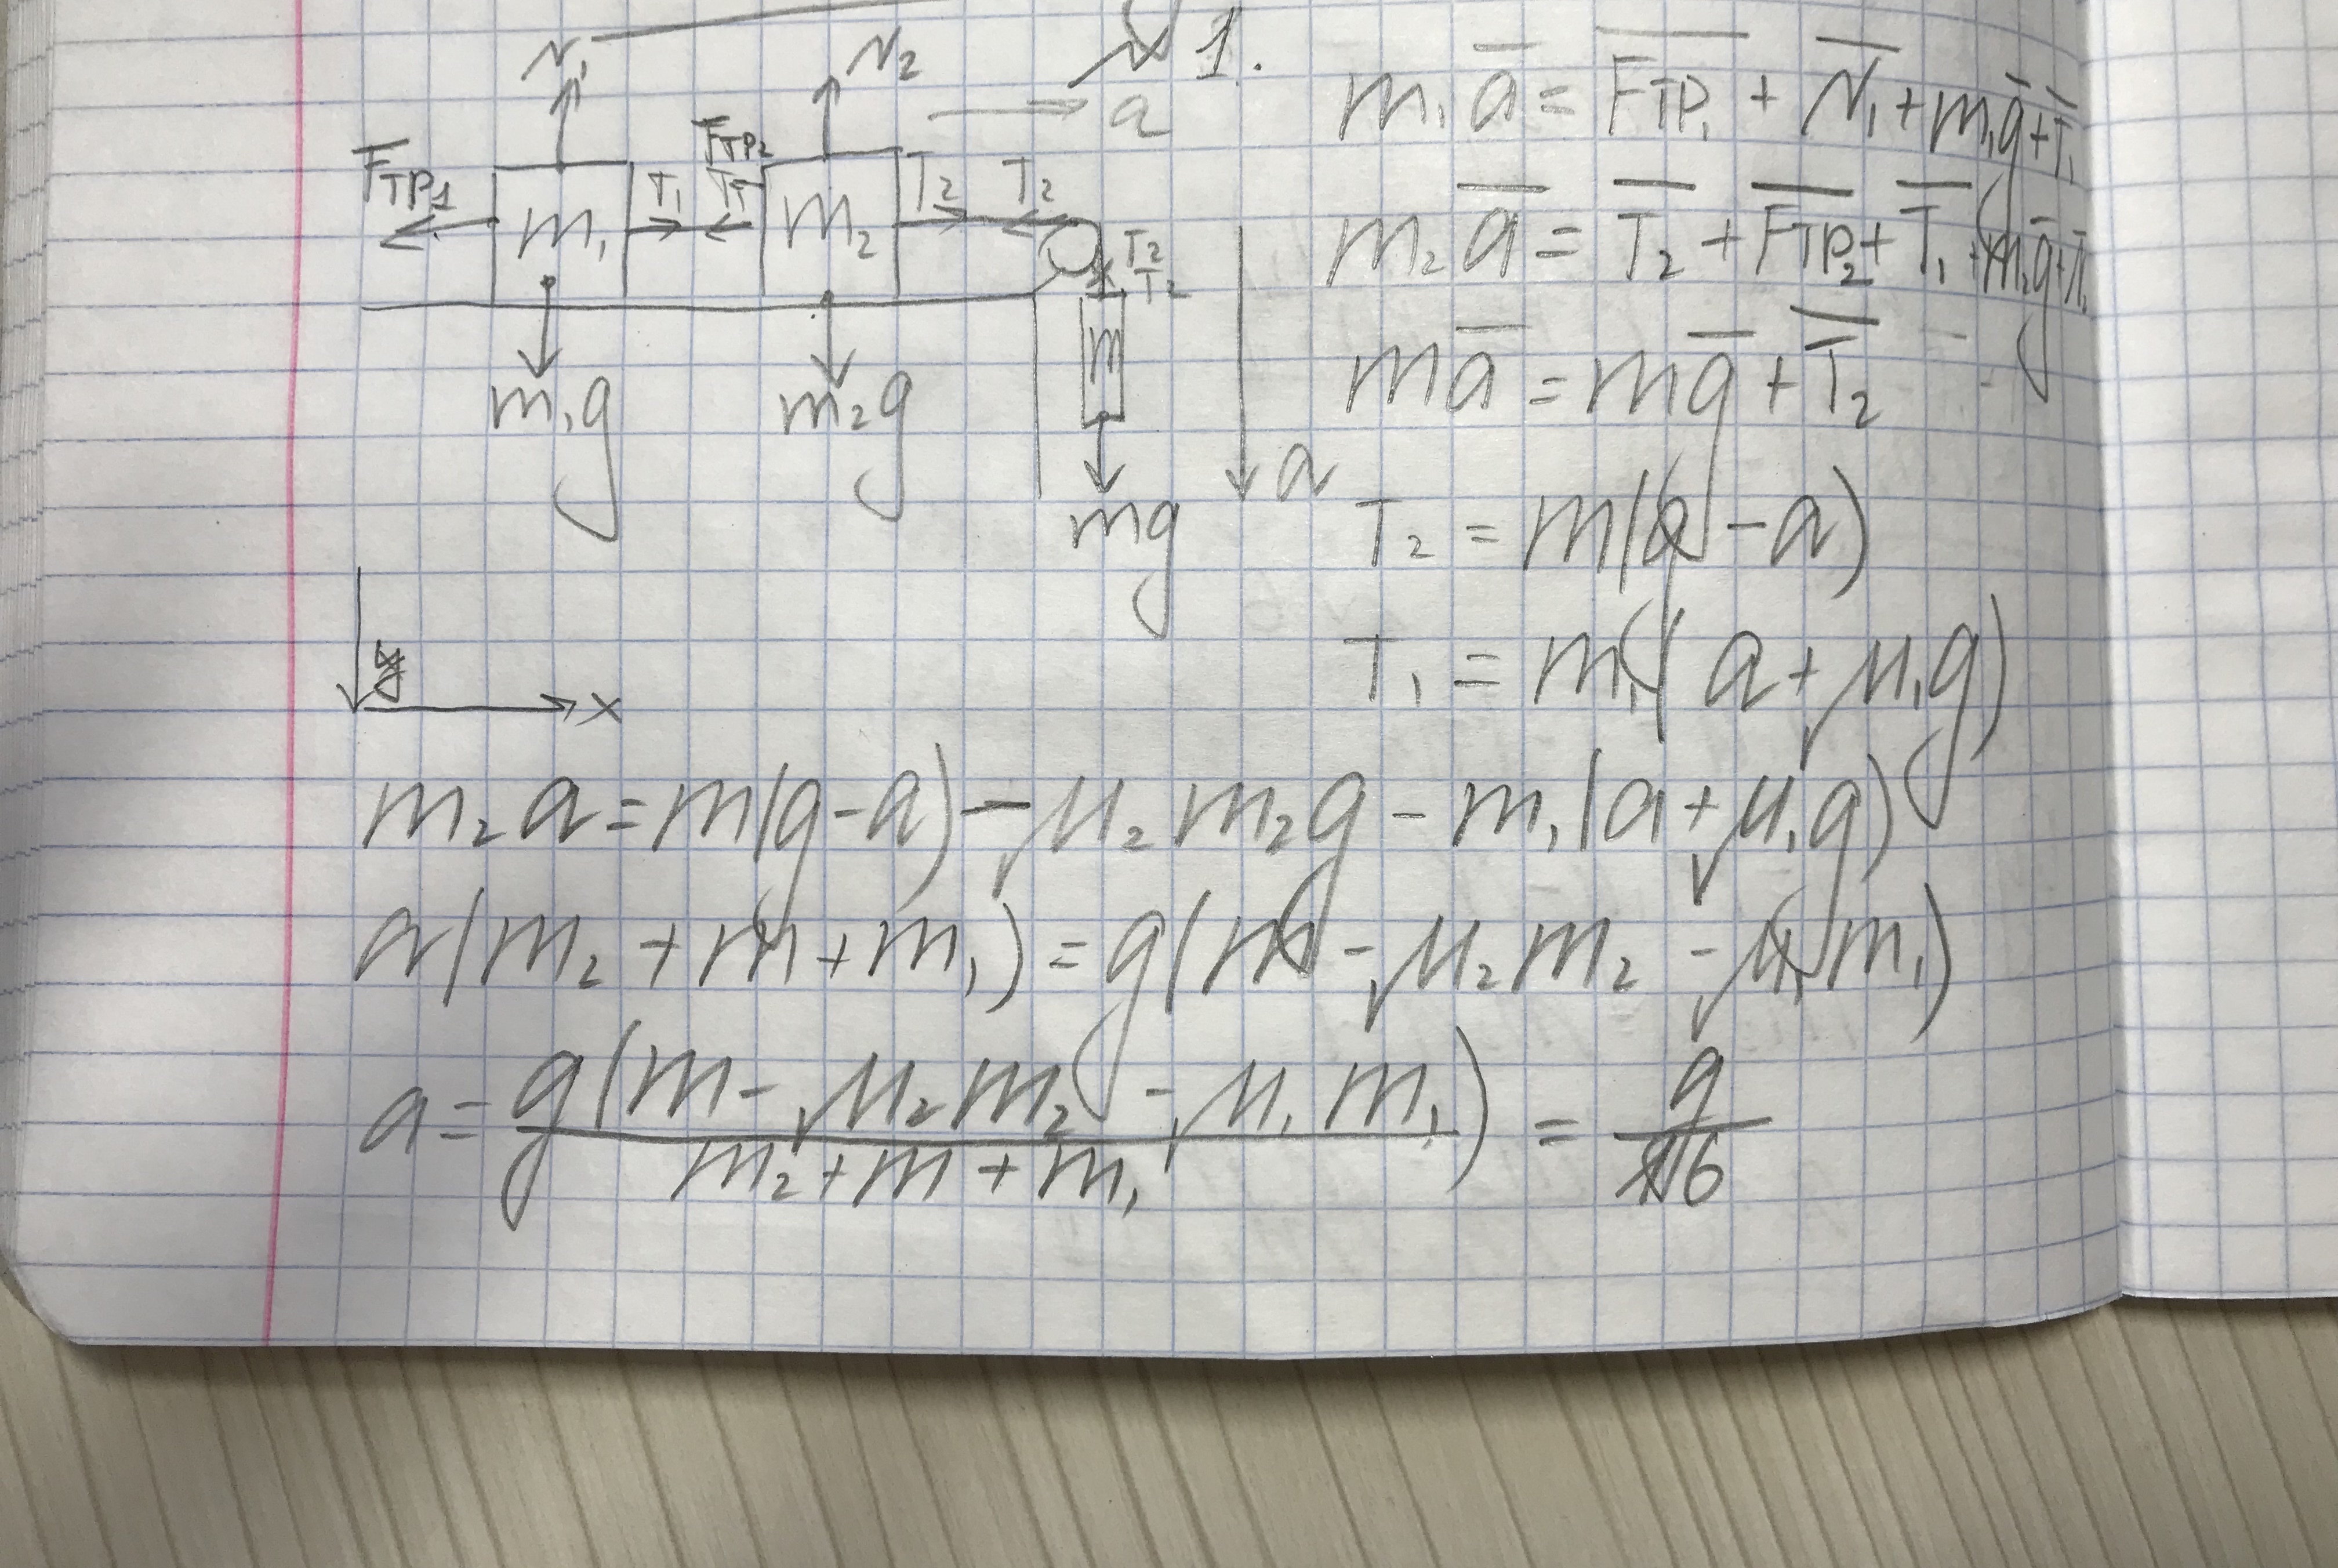 N₁ N₂ №1.
a
Fтр₁ m₁ T₁ T₁ Fтр₂ m₂ T₂ T₂
T₂
T₂
m
m₁g m₂g
mg
a
y
x
m₁a̅ = F̅тр₁ + N̅₁ + m₁g̅ + T̅₁
m₂a̅ = T̅₂ + F̅тр₂ + T̅₁ + m₂g̅ + N̅₂
ma̅ = mg̅ + T̅₂
T₂ = m(g - a)
T₁ = m₁(a + μ₁g)
m₂a = m(g - a) - μ₂m₂g - m₁(a + μ₁g)
a(m₂ + m + m₁) = g(m - μ₂m₂ - μ₁m₁)
a = g(m - μ₂m₂ - μ₁m₁) / m₂ + m + m₁ = g / 6